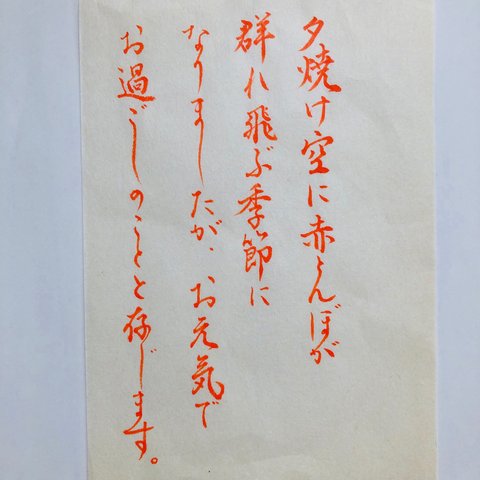 夕焼け空に赤とんぼが
群れ飛ぶ季節に
なりましたが、お元気で
お過ごしのことと存じます。